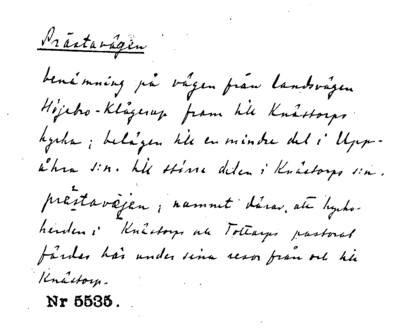 Prästavägen
benämning på vägen från landsvägen
Höjebro-Klågerup fram till Knästorps
kyrka; belägen till en mindre del i Upp-
åkra s:n. till större delen i Knästorps s:n.
prästavägen; namnet därav, att kyrko-
herden i Knästorps och Tottarps pastorat
färdas här under sina resor från och till
Knästorp.
Nr 5535.